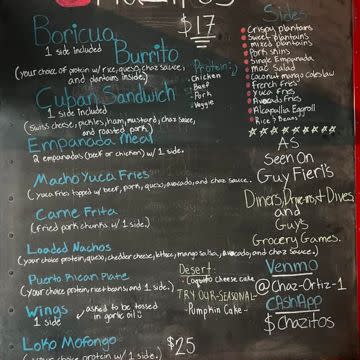 $17
Boricua
Burrito
1 side included
(your choice of protein w/ rice, queso, chaz sauce,
and plantains inside)
Cuban Sandwich
1 side included
(swiss cheese, pickles, ham, mustard, chaz sauce,
and roasted pork)
Empanada Meal
2 empanadas (beef or chicken) w/ 1 side.
Macho Yuca Fries
(yuca fries topped w/ beef, pork, queso, avocado, and chaz sauce.
Carne Frita
(fried pork chunks w/ 1 side.)
Loaded Nachos
(your choice protein, queso, cheddar cheese, lettuce, mango salsa, avocado, and chaz sauce.)
Puerto Rican Plate
(your choice protein, rice + beans, and 1 side.)
Wings
1 side
asked to be tossed
in garlic oil
Loko Mofongo
(your choice protein w/ 1 side.)
$25
Protein:)
Chicken
Beef
Pork
Veggie
Dessert:
Coquito cheese cake
TRY OUR-SEASONAL-
Pumpkin Cake-
Sides
Crispy plantains
Sweet plantains
mixed plantains
Pork skins
Single Empanada
Mac Salad
Coconut mango coleslaw
French fries
Yuca fries
Avocado fries
Alcapurria Eggroll
Rice & beans
AS
Seen On
Guy Fieri's
Diners, Drive-ins & Dives
and
Guys
Grocery Games.
Venmo
@Chaz-Ortiz-1
CashApp
$Chazitos